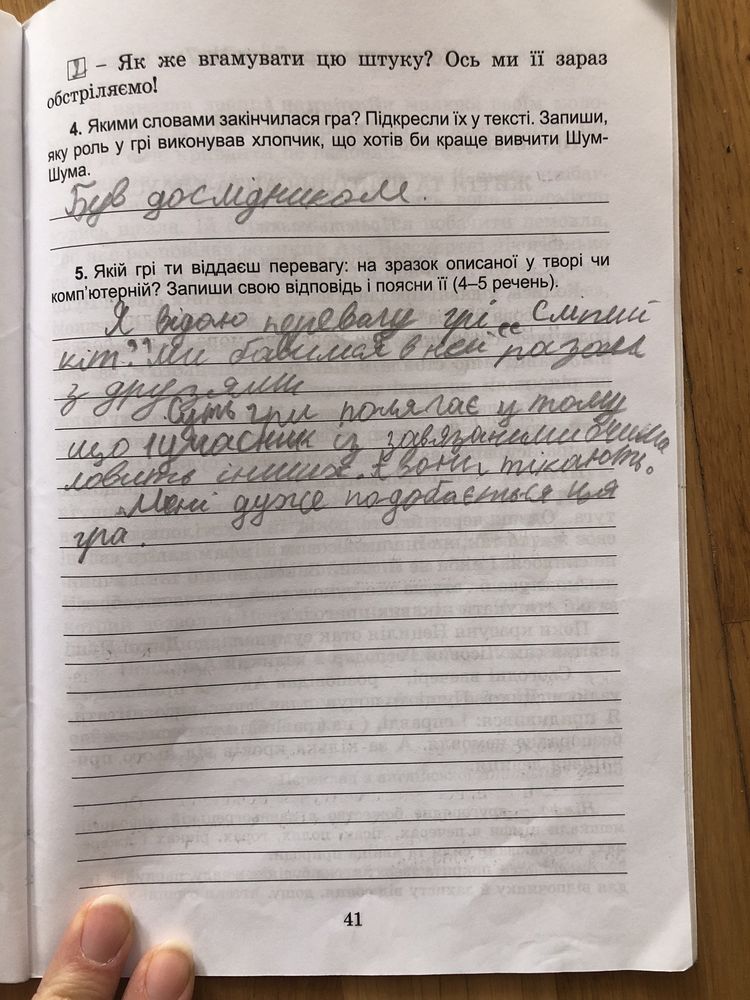 – Як же вгамувати цю штуку? Ось ми її зараз
обстріляємо!
4. Якими словами закінчилася гра? Підкресли їх у тексті. Запиши,
яку роль у грі виконував хлопчик, що хотів би краще вивчити Шум-
Шума.
Був дослідником.
5. Якій грі ти віддаєш перевагу: на зразок описаної у творі чи
комп'ютерній? Запиши свою відповідь і поясни її (4–5 речень).
Я відаю перевагу грі "Сліпий
кіт". Ми бавимся в неї разом
з друзями
Суть гри полягає у тому
що 1 учасник із завязаними очима
ловить інших. А вони тікають.
Мені дуже подобається ця
гра.
41